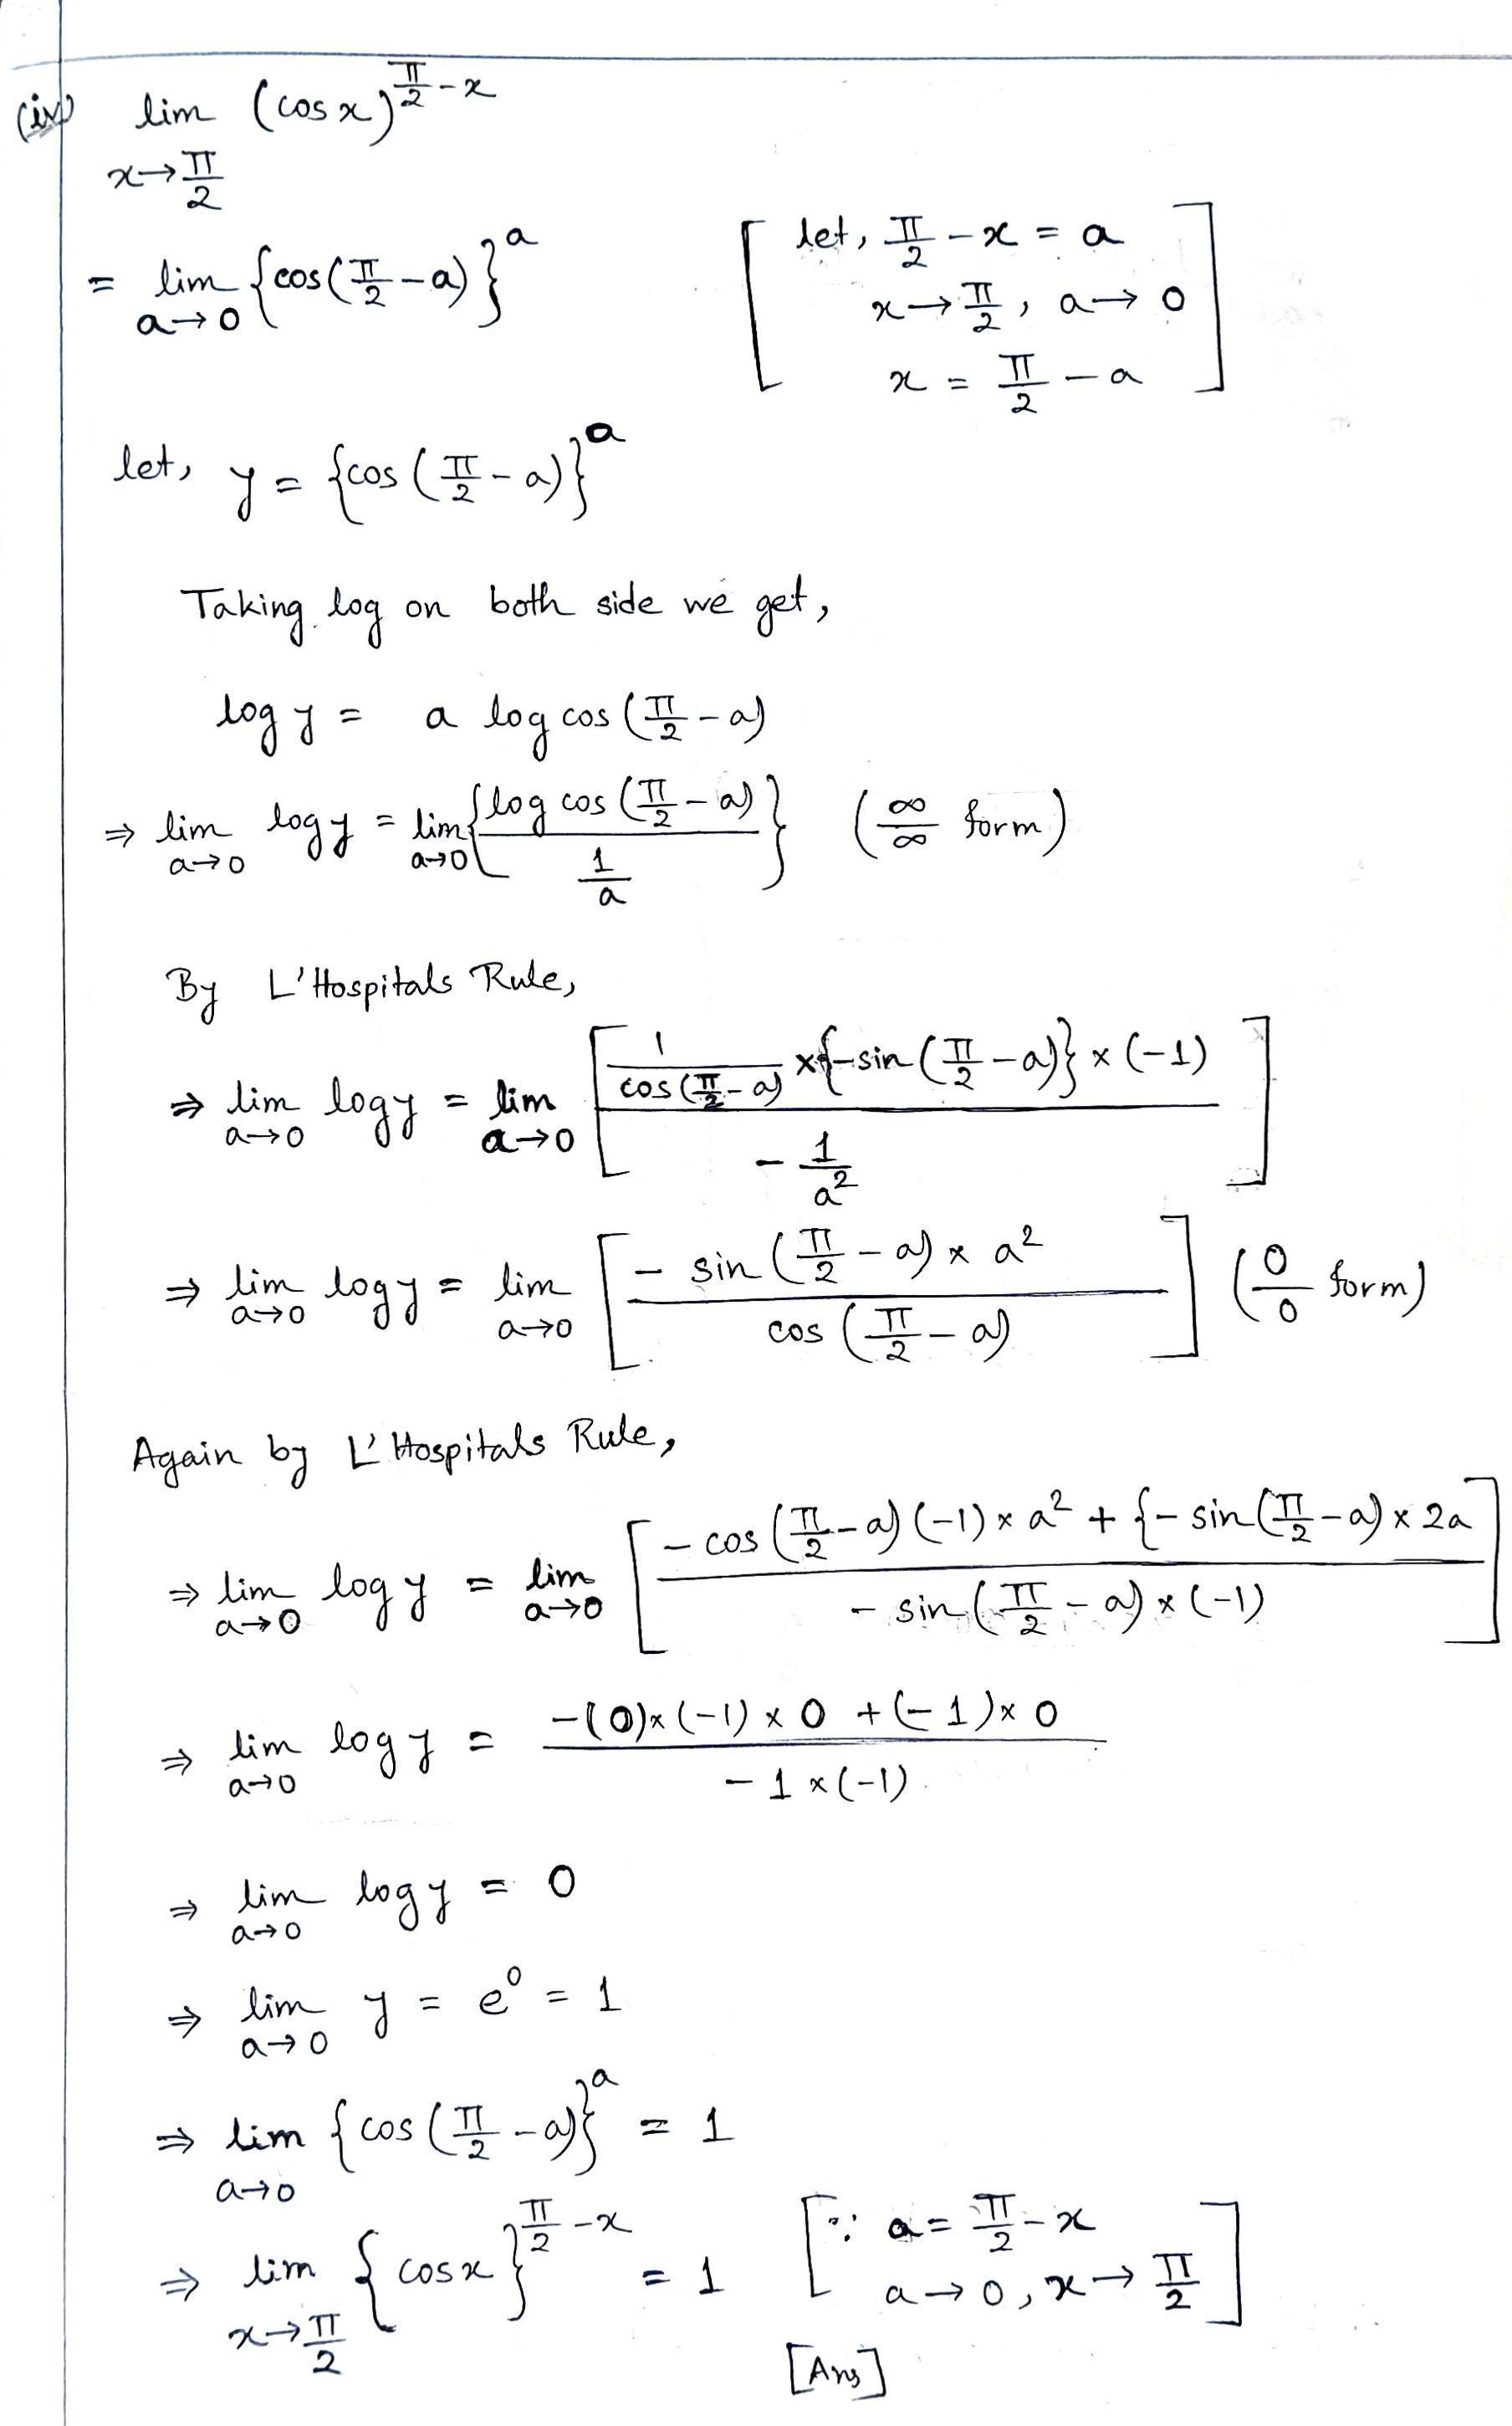 (iv) lim (cos x)^{π/2 - x}
x→π/2
= lim {cos(π/2 - a)}^a
a→0
[let, π/2 - x = a
x→π/2, a→0
x = π/2 - a]
let, y = {cos(π/2 - a)}^a
Taking log on both side we get,
log y = a log cos(π/2 - a)
⇒ lim log y = lim {log cos(π/2 - a) / (1/a)} (∞/∞ form)
a→0 a→0
By L'Hospitals Rule,
⇒ lim log y = lim [1/cos(π/2 - a) × {-sin(π/2 - a)} × (-1) / (-1/a²)]
a→0 a→0
⇒ lim log y = lim [- sin(π/2 - a) × a² / cos(π/2 - a)] (0/0 form)
a→0 a→0
Again by L'Hospitals Rule,
⇒ lim log y = lim [- cos(π/2 - a)(-1) × a² + {- sin(π/2 - a) × 2a / - sin(π/2 - a) × (-1)]
a→0 a→0
⇒ lim log y = -(0)×(-1)×0 + (-1)×0 / -1×(-1)
a→0
⇒ lim log y = 0
a→0
⇒ lim y = e^0 = 1
a→0
⇒ lim {cos(π/2 - a)}^a = 1
a→0
⇒ lim {cos x}^{π/2 - x} = 1
x→π/2
[∵ a = π/2 - x
a→0, x→π/2]
[Ans]